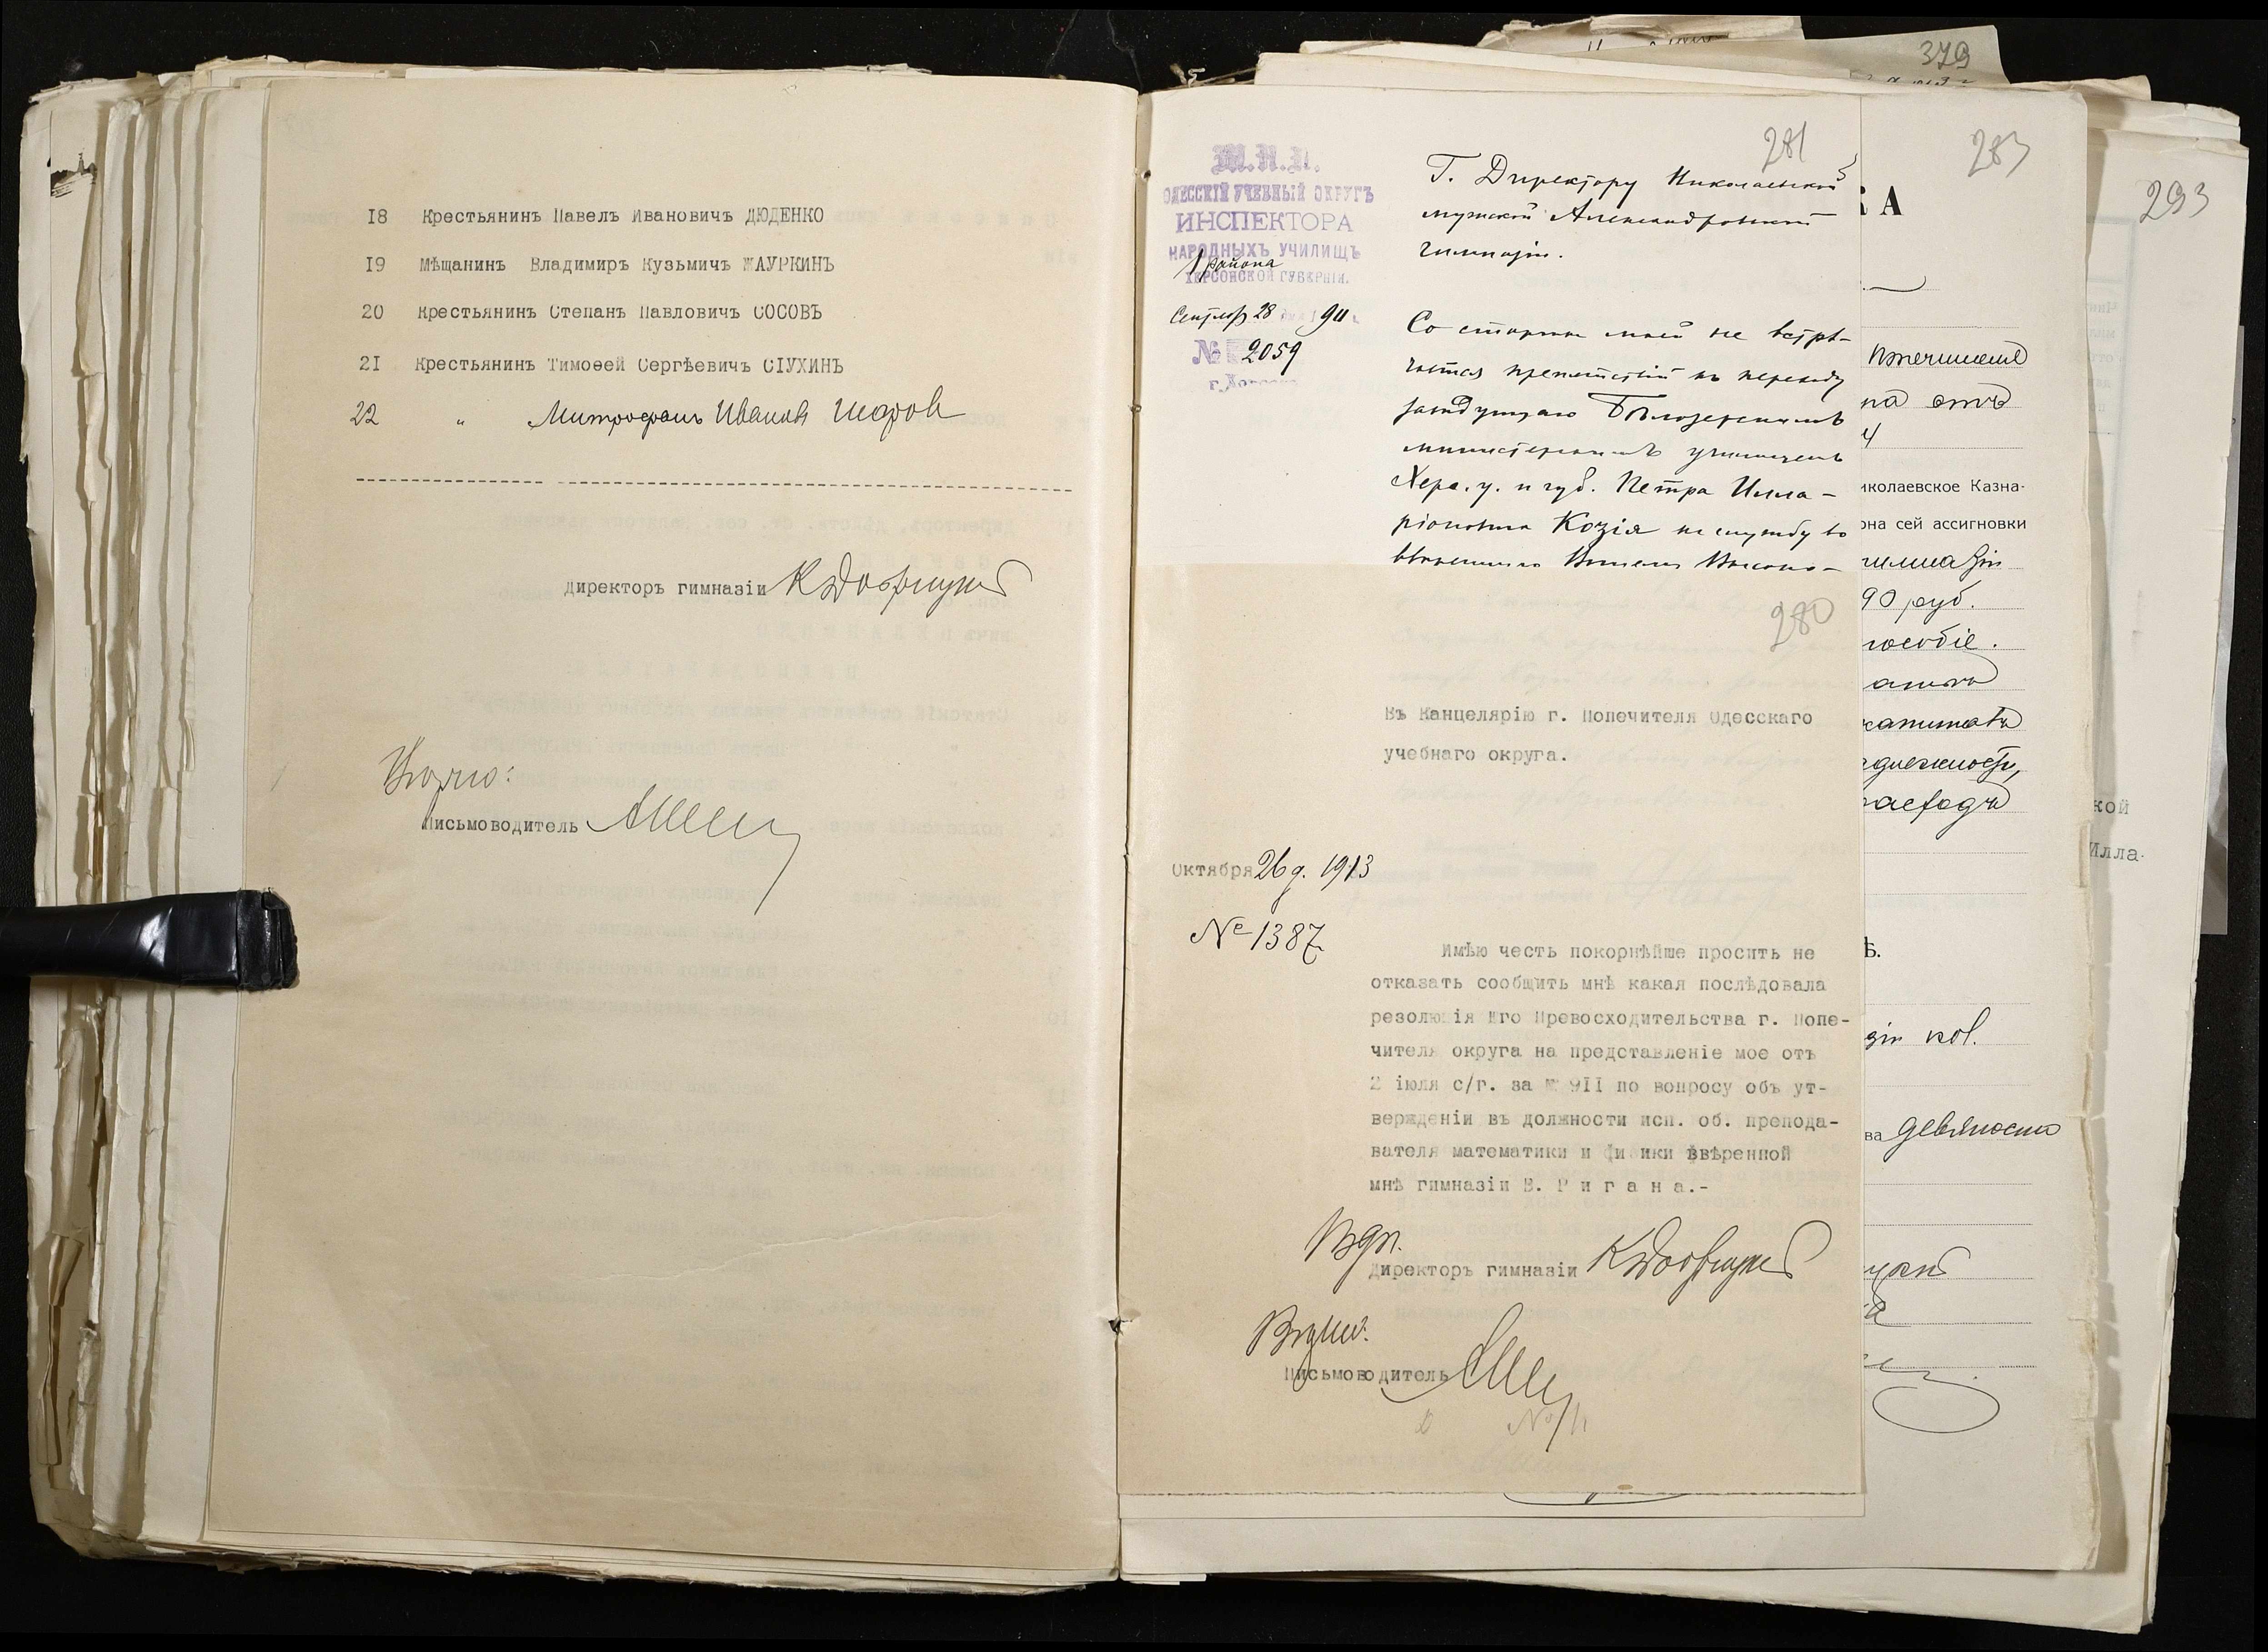 18 Крестьянинъ Павелъ Ивановичъ ДЮДЕНКО
19 Мѣщанинъ Владимиръ Кузьмичъ ЖАУРКИНЪ
20 Крестьянинъ Степанъ Павловичъ СОСОВЪ
21 Крестьянинъ Тимоѳей Сергѣевичъ СІУХИНЪ
22 " Митрофанъ Иванов
Директоръ гимназіи
Письмоводитель
379
281
М.Н.П.
ОДЕССКІЙ УЧЕБНЫЙ ОКРУГЪ
ИНСПЕКТОРА
НАРОДНЫХЪ УЧИЛИЩЪ
1 района
ХЕРСОНСКОЙ ГУБЕРНІИ.
28
№ 2059
Г. Директору Николаевской
мужской Александровской
гимназіи.
Со стороны моей не встрѣ-
чается препятствій къ переходу
Бѣлозерскимъ
министерскимъ училищемъ
Херс. у. и губ. Петра Илла-
ріоновича Козія на службу во
280
Въ Канцелярію г. Попечителя Одесскаго
учебнаго округа.
Октября 26 д. 1913
№ 1387
Имѣю честь покорнѣйше просить не
отказать сообщить мнѣ какая послѣдовала
резолюція Его Превосходительства г. Попе-
чителя округа на представленіе мое отъ
2 іюля с/г. за № 911 по вопросу объ ут-
вержденіи въ должности исп. об. препода-
вателя математики и физики ввѣренной
мнѣ гимназіи В. Р и г а н а.-
Директоръ гимназіи
Письмоводитель
283
А
иколаевское Казна-
она сей ассигновки
90 руб.
пособіе.
расходъ
ва девяносто
293
кой
Илла-